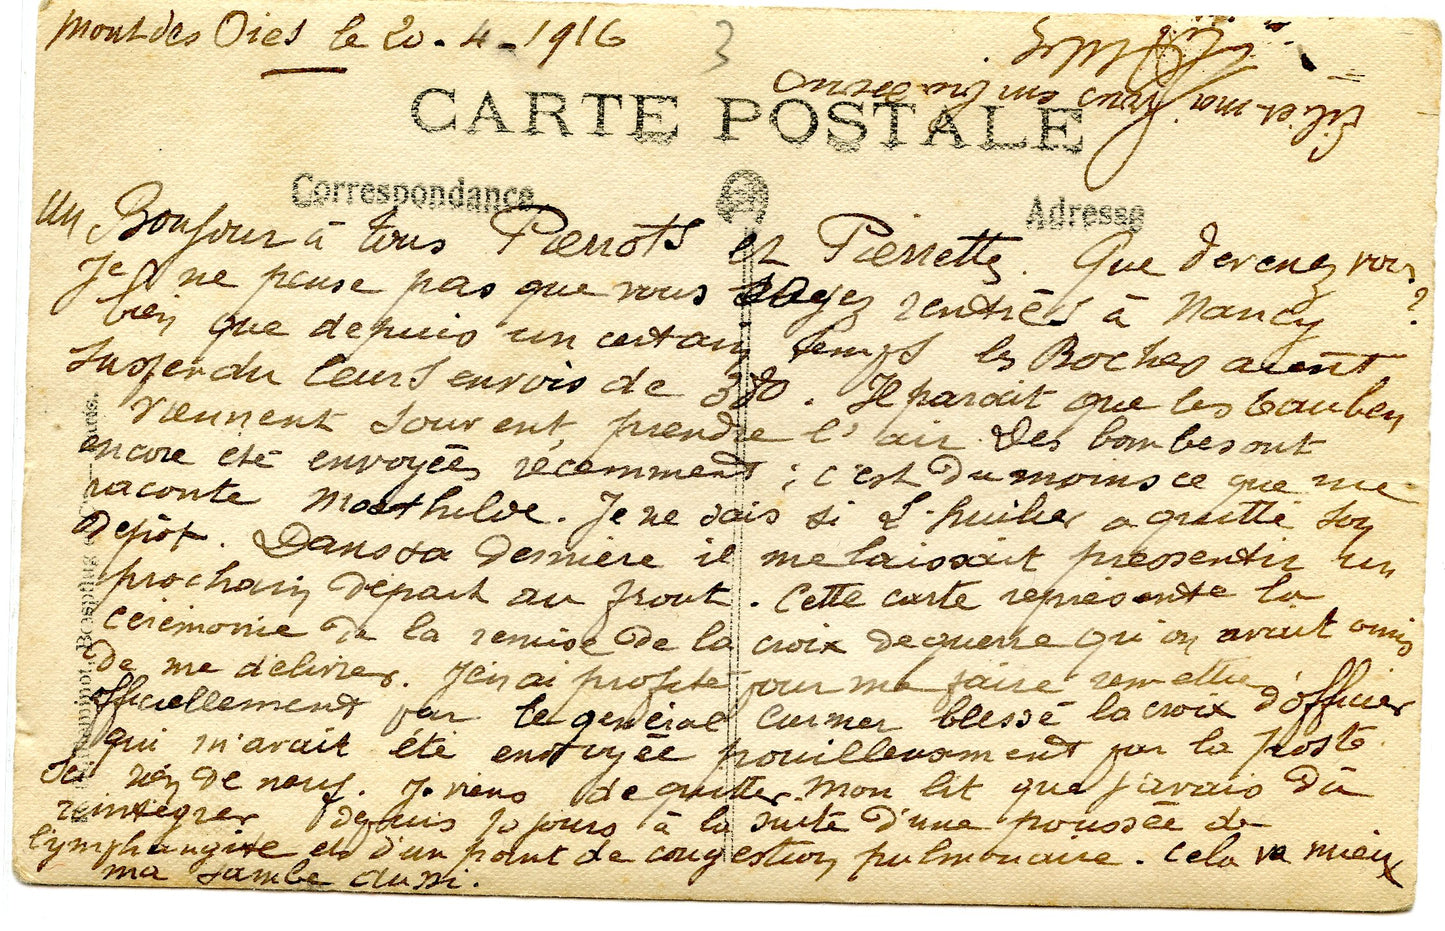 Mont des Oies le 20-4-1916
3
CARTE POSTALE
Correspondance
Adresse
Un Bonjour à tous Pierrots et Pierrette. Que devenez vous?
Je ne pense pas que vous soyez rentrés à Nancy
bien que depuis un certain temps les Boches aient
suspendu leurs envois de 380. Il parait que les tauben
viennent souvent prendre l'air. Des bombes ont
encore été envoyées récemment ; c'est du moins ce que me
raconte Mathilde. Je ne sais si L'huilier a quitté son
dépôt. Dans sa dernière il me laissait pressentir un
prochain départ au front. Cette carte représente la
cérémonie de la remise de la croix de guerre qu'on avait omis
de me délivrer. J'en ai profité pour me faire remettre
officiellement par le général Curmer blessé la croix d'officier
qui m'avait été envoyée pouilleusement par la poste.
Ici rien de neuf. Je viens de quitter mon lit que j'avais dû
réintégrer depuis 10 jours à la suite d'une poussée de
lymphangite et d'un point de congestion pulmonaire. Cela va mieux
ma jambe aussi.